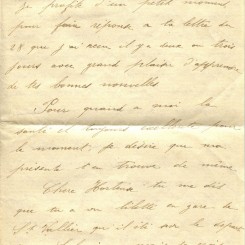 Je profite d'un petit moment
pour faire réponse a ta lettre du
28 que j'ai reçu il y a deux ou trois
jours avec grand plaisir d'apprendre
de tes bonnes nouvelles
Pour quand a moi la
santé et toujours excellente pour
le moment. je désire que ma
présente t'en trouve de même
Chère tu me dit
que tu a vu en gare de
St Vallier qu'il été sur le départ